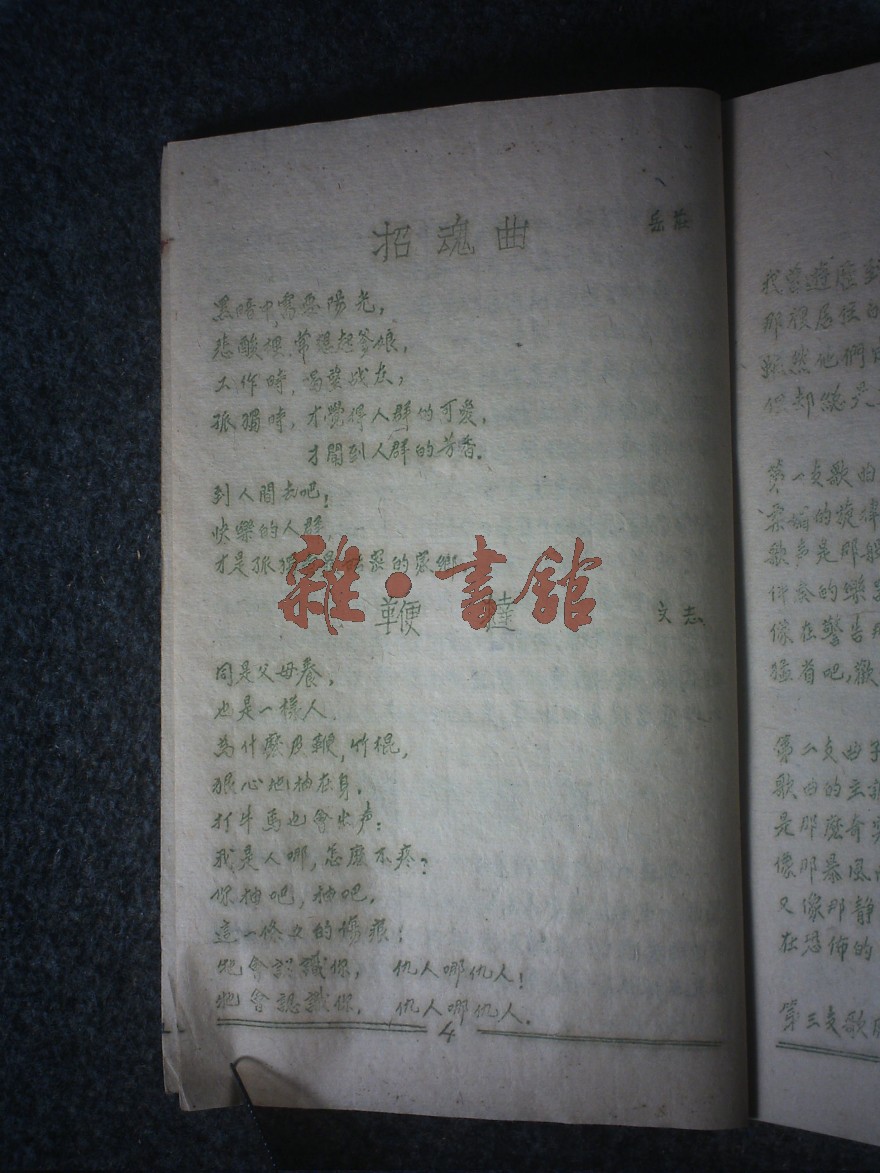 招魂曲
岳莊
黑暗中需要陽光,
悲酸裡,常想起爹娘,
工作時,渴望战友,
孤獨時,才覺得人群的可愛,
才聞到人群的芳香。
到人間去吧!
快樂的人群
才是孤
的家鄉
雜·書館
鞭 撻
文志
同是父母養,
也是一樣人.
為什麼皮鞭,竹棍,
狠心地抽在身.
打牛馬也會出声;
我是人哪,怎麼不疼?
你抽吧,抽吧,
這一條々的傷痕!
牠會認識你, 仇人哪仇人!
牠會認識你, 仇人哪仇人.
4
我曾
那裡居住
雖然他們
但却總
第一支歌曲
的旋律
歌声是那
伴奏的樂
像在警告
猛省吧,歡
第二支曲子
歌曲的主
是那麼奇
像那暴風
又像那静
在恐佈的
第三支歌